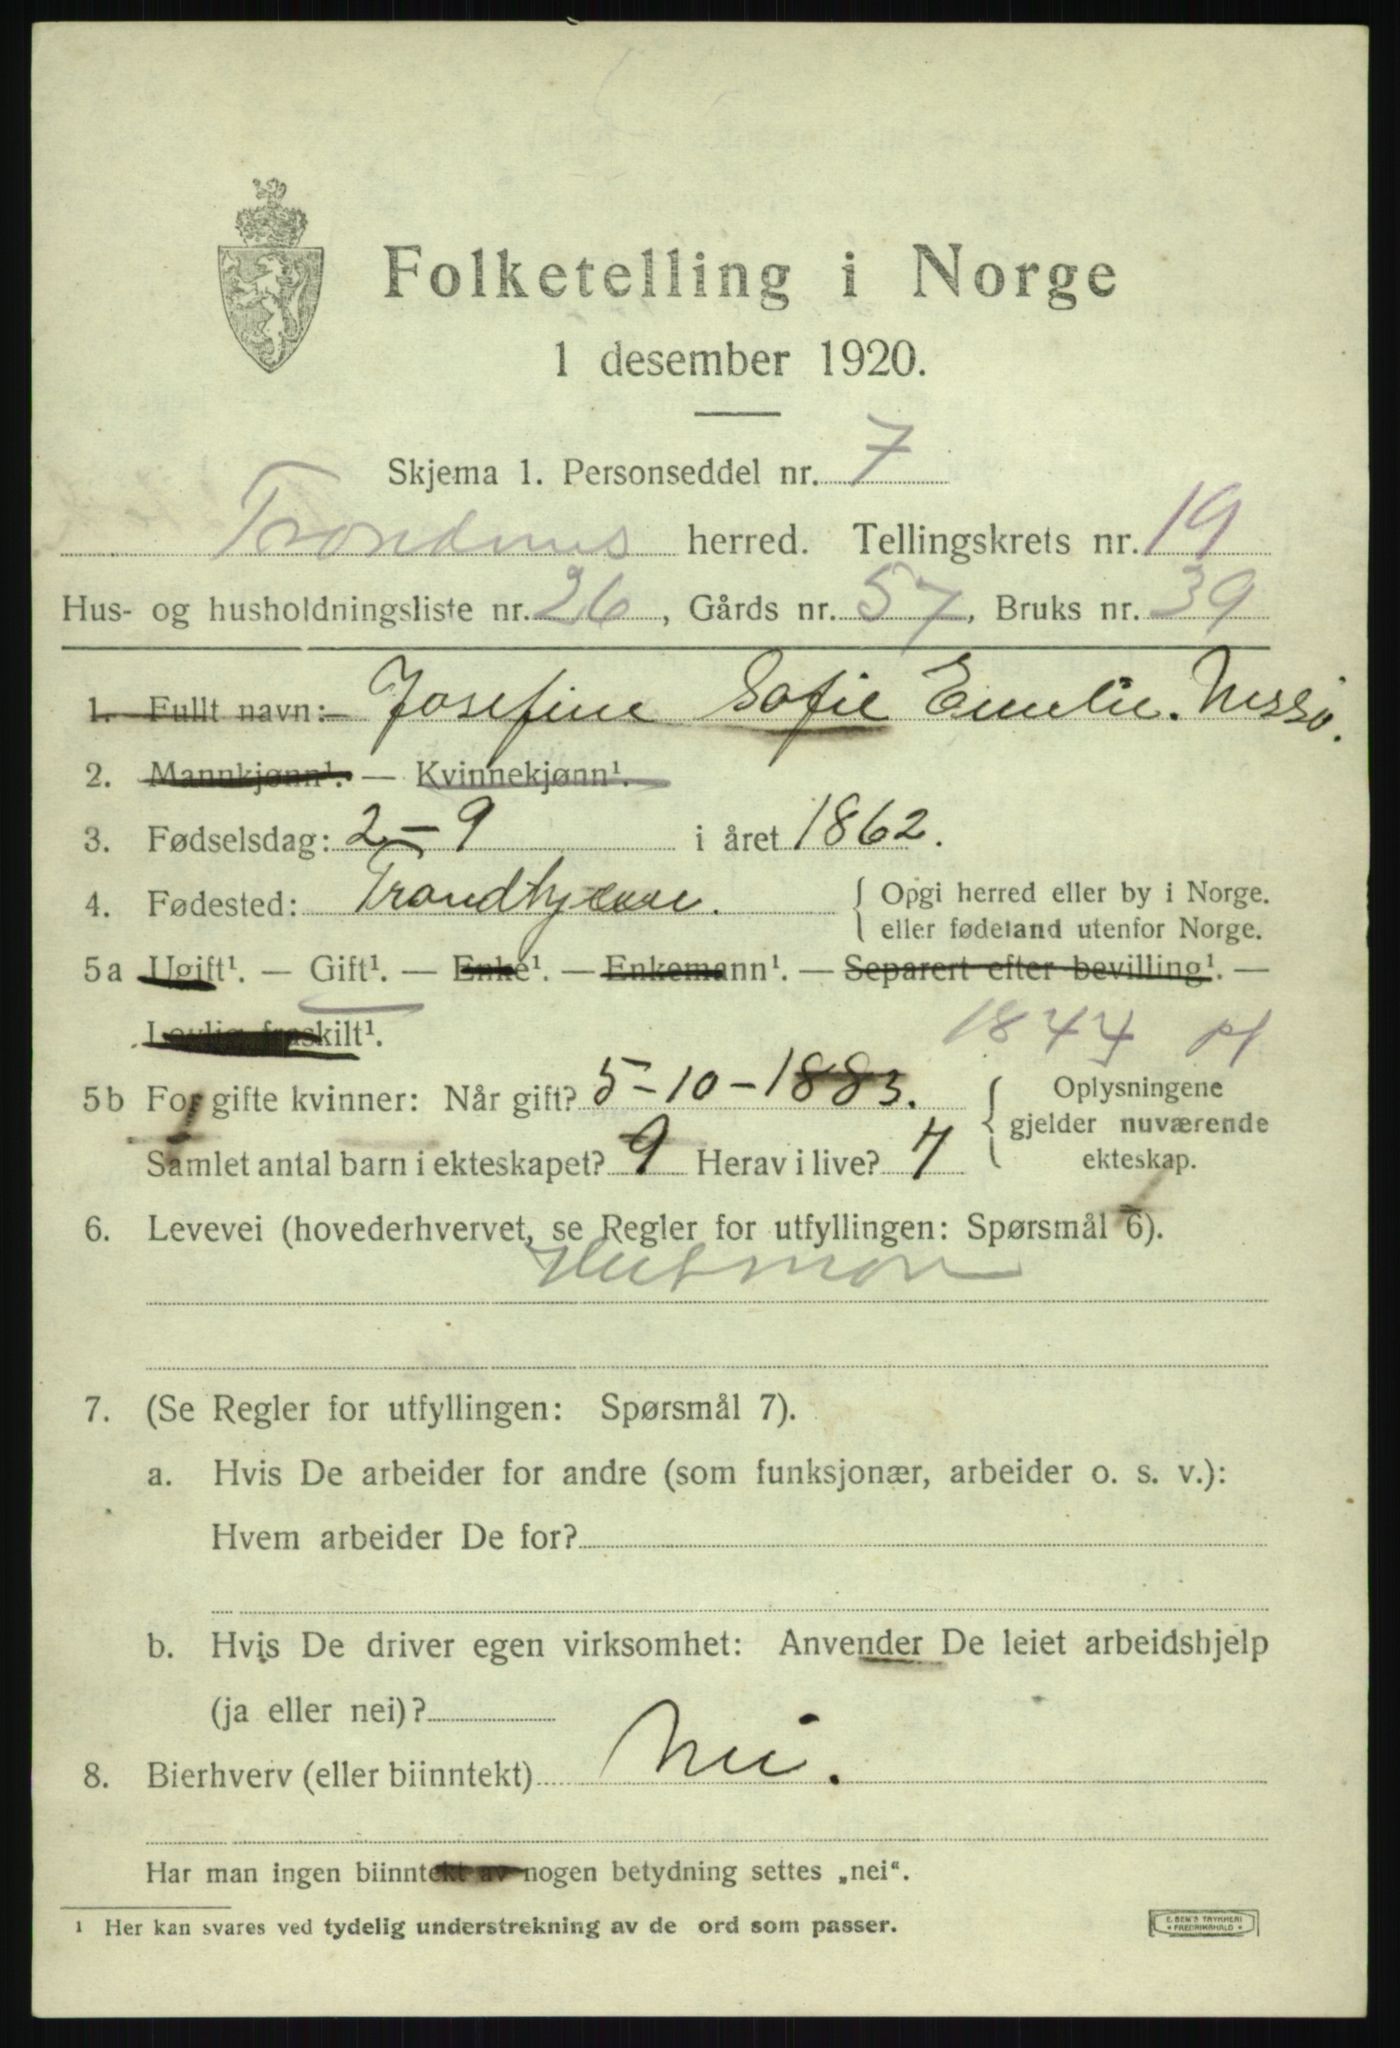 Folketelling i Norge
1 desember 1920.
Skjema 1. Personseddel nr. 7
Trondenes herred. Tellingskrets nr. 19
Hus- og husholdningsliste nr. 26, Gårds nr. 57, Bruks nr. 39
1. Fullt navn: Josefine Sofie Emelie. Nessø.
2. Mannkjønn¹. — Kvinnekjønn¹.
3. Fødselsdag: 2-9 i året 1862.
4. Fødested: Trondhjem. { Opgi herred eller by i Norge.
eller fødeland utenfor Norge.
5a Ugift¹. — Gift¹. — Enke¹. — Enkemann¹. — Separert efter bevilling¹. —
Lovlig fraskilt¹. 1844
5b For gifte kvinner: Når gift? 5-10-1883. { Oplysningene
gjelder nuværende
ekteskap.
Samlet antal barn i ekteskapet? 9 Herav i live? 7
6. Levevei (hovederhvervet, se Regler for utfyllingen: Spørsmål 6).
Husmor
7. (Se Regler for utfyllingen: Spørsmål 7).
a. Hvis De arbeider for andre (som funksjonær, arbeider o. s. v.):
Hvem arbeider De for?
b. Hvis De driver egen virksomhet: Anvender De leiet arbeidshjelp
(ja eller nei)?
8. Bierhverv (eller biinntekt) Nei.
Har man ingen biinntekt av nogen betydning settes „nei“.
¹ Her kan svares ved tydelig understrekning av de ord som passer.
E. SEM'S TRYKKERI
FREDRIKSHALD